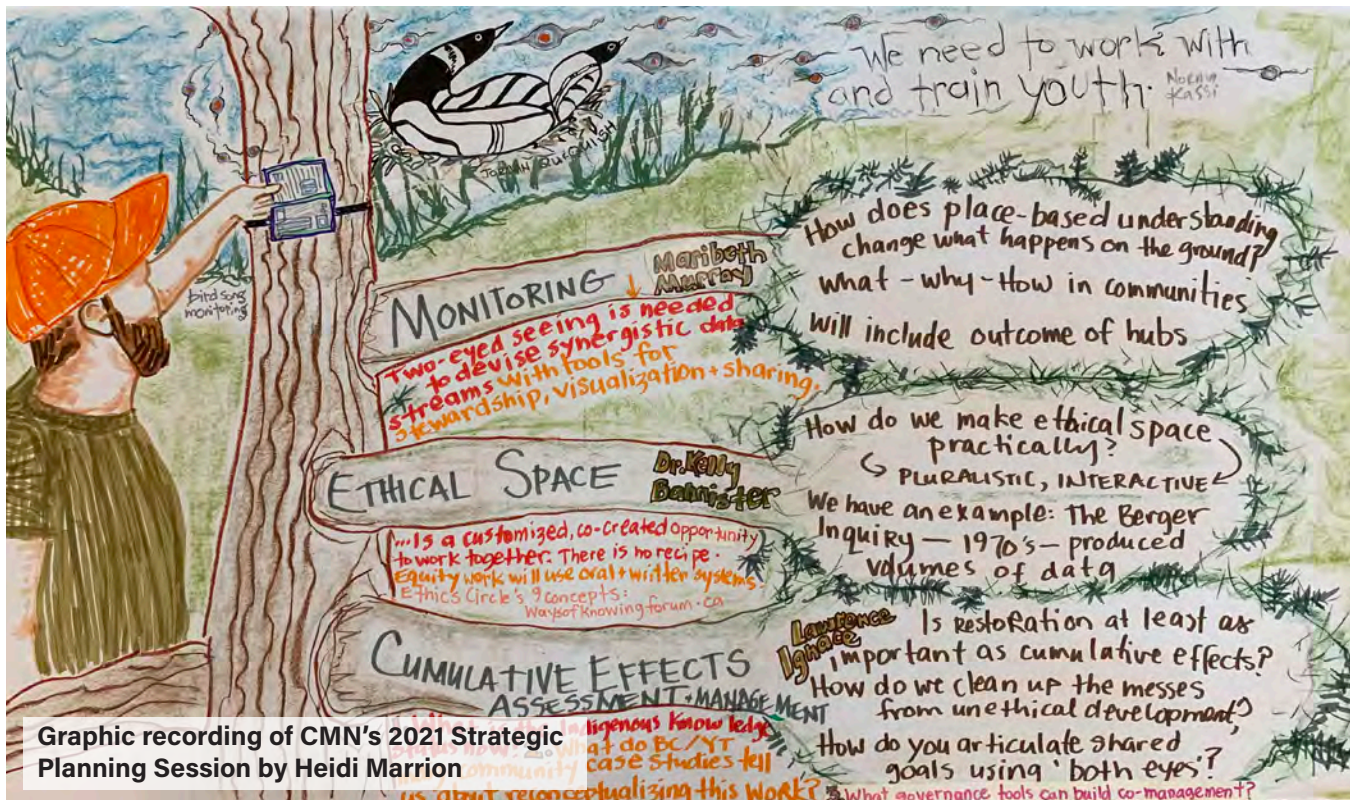 We need to work with
and train youth.
Norma
Kassi
JORDAN
bird song
monitoring
MONITORING
Maribeth
Murray
Two-eyed seeing is needed
to devise synergistic data
streams with tools for
stewardship, visualization + sharing.
How does place-based understanding
change what happens on the ground?
what - why - How in communities
will include outcome of hubs
ETHICAL SPACE
Dr. Kelly
Bannister
...Is a customized, co-created opportunity
to work together. There is no recipe.
Equity work will use oral + written systems.
Ethics Circle's 9 concepts:
Waysofknowingforum.ca
How do we make ethical space
practically?
PLURALISTIC, INTERACTIVE
We have an example: The Berger
Inquiry — 1970's — produced
volumes of data
CUMULATIVE EFFECTS
ASSESSMENT + MANAGEMENT
digenous Knowledge
at do BC/YT
community case studies tell
us about reconceptualizing this work?
Lawrence
Ignace
Is Restoration at least as
important as cumulative effects?
How do we clean up the messes
from unethical development?
How do you articulate shared
goals using 'both eyes'?
3. What governance tools can build co-management?
Graphic recording of CMN's 2021 Strategic
Planning Session by Heidi Marrion